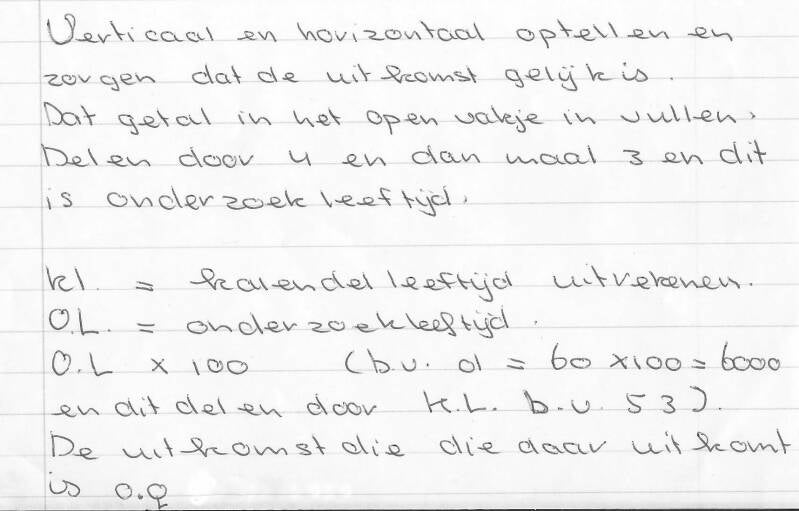 Verticaal en horizontaal optellen en
zorgen dat de uitkomst gelijk is.
Dat getal in het open vakje in vullen.
Delen door 4 en dan maal 3 en dit
is onderzoekleeftijd.
kl. = kalendelleeftijd uitrekenen.
O.L. = onderzoekleeftijd.
O.L x 100 (b.v. ol = 60 x100 = 6000
en dit delen door K.L. b.v. 53).
De uitkomst die die daar uitkomt
is O.Q